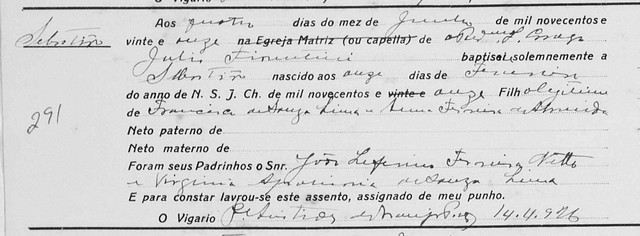 O Vigario
Aos quatro dias do mez de Junho de mil novecentos e
Sebastião vinte e onze na Egreja Matriz (ou capella) de
Julio Fiorentini baptisei solemnemente a
Sebastião nascido aos onze dias de Fevereiro
do anno de N. S. J. Ch. de mil novecentos e vinte e onze Filho legitimo
291 de Francisco de Souza Lima e Ferreira de Almeida
Neto paterno de
Neto materno de
Foram seus Padrinhos o Snr. João Ferreira Netto
e Virginia Apolinaria de Souza Lima
E para constar lavrou-se este assento, assignado de meu punho.
O Vigario 14.4.926